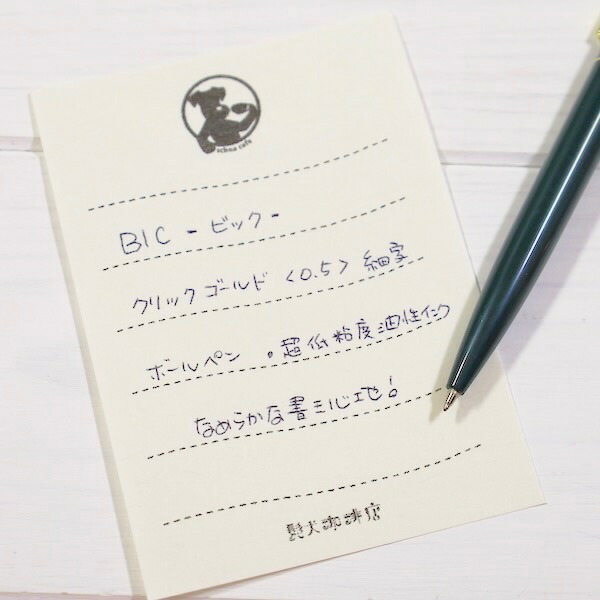 schna cafe
BIC - ビック -
クリックゴールド <0.5> 細字
ボールペン ・超低粘度油性インク
なめらかな書き心地!
髭犬珈琲店